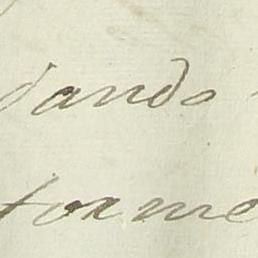 dando
forme